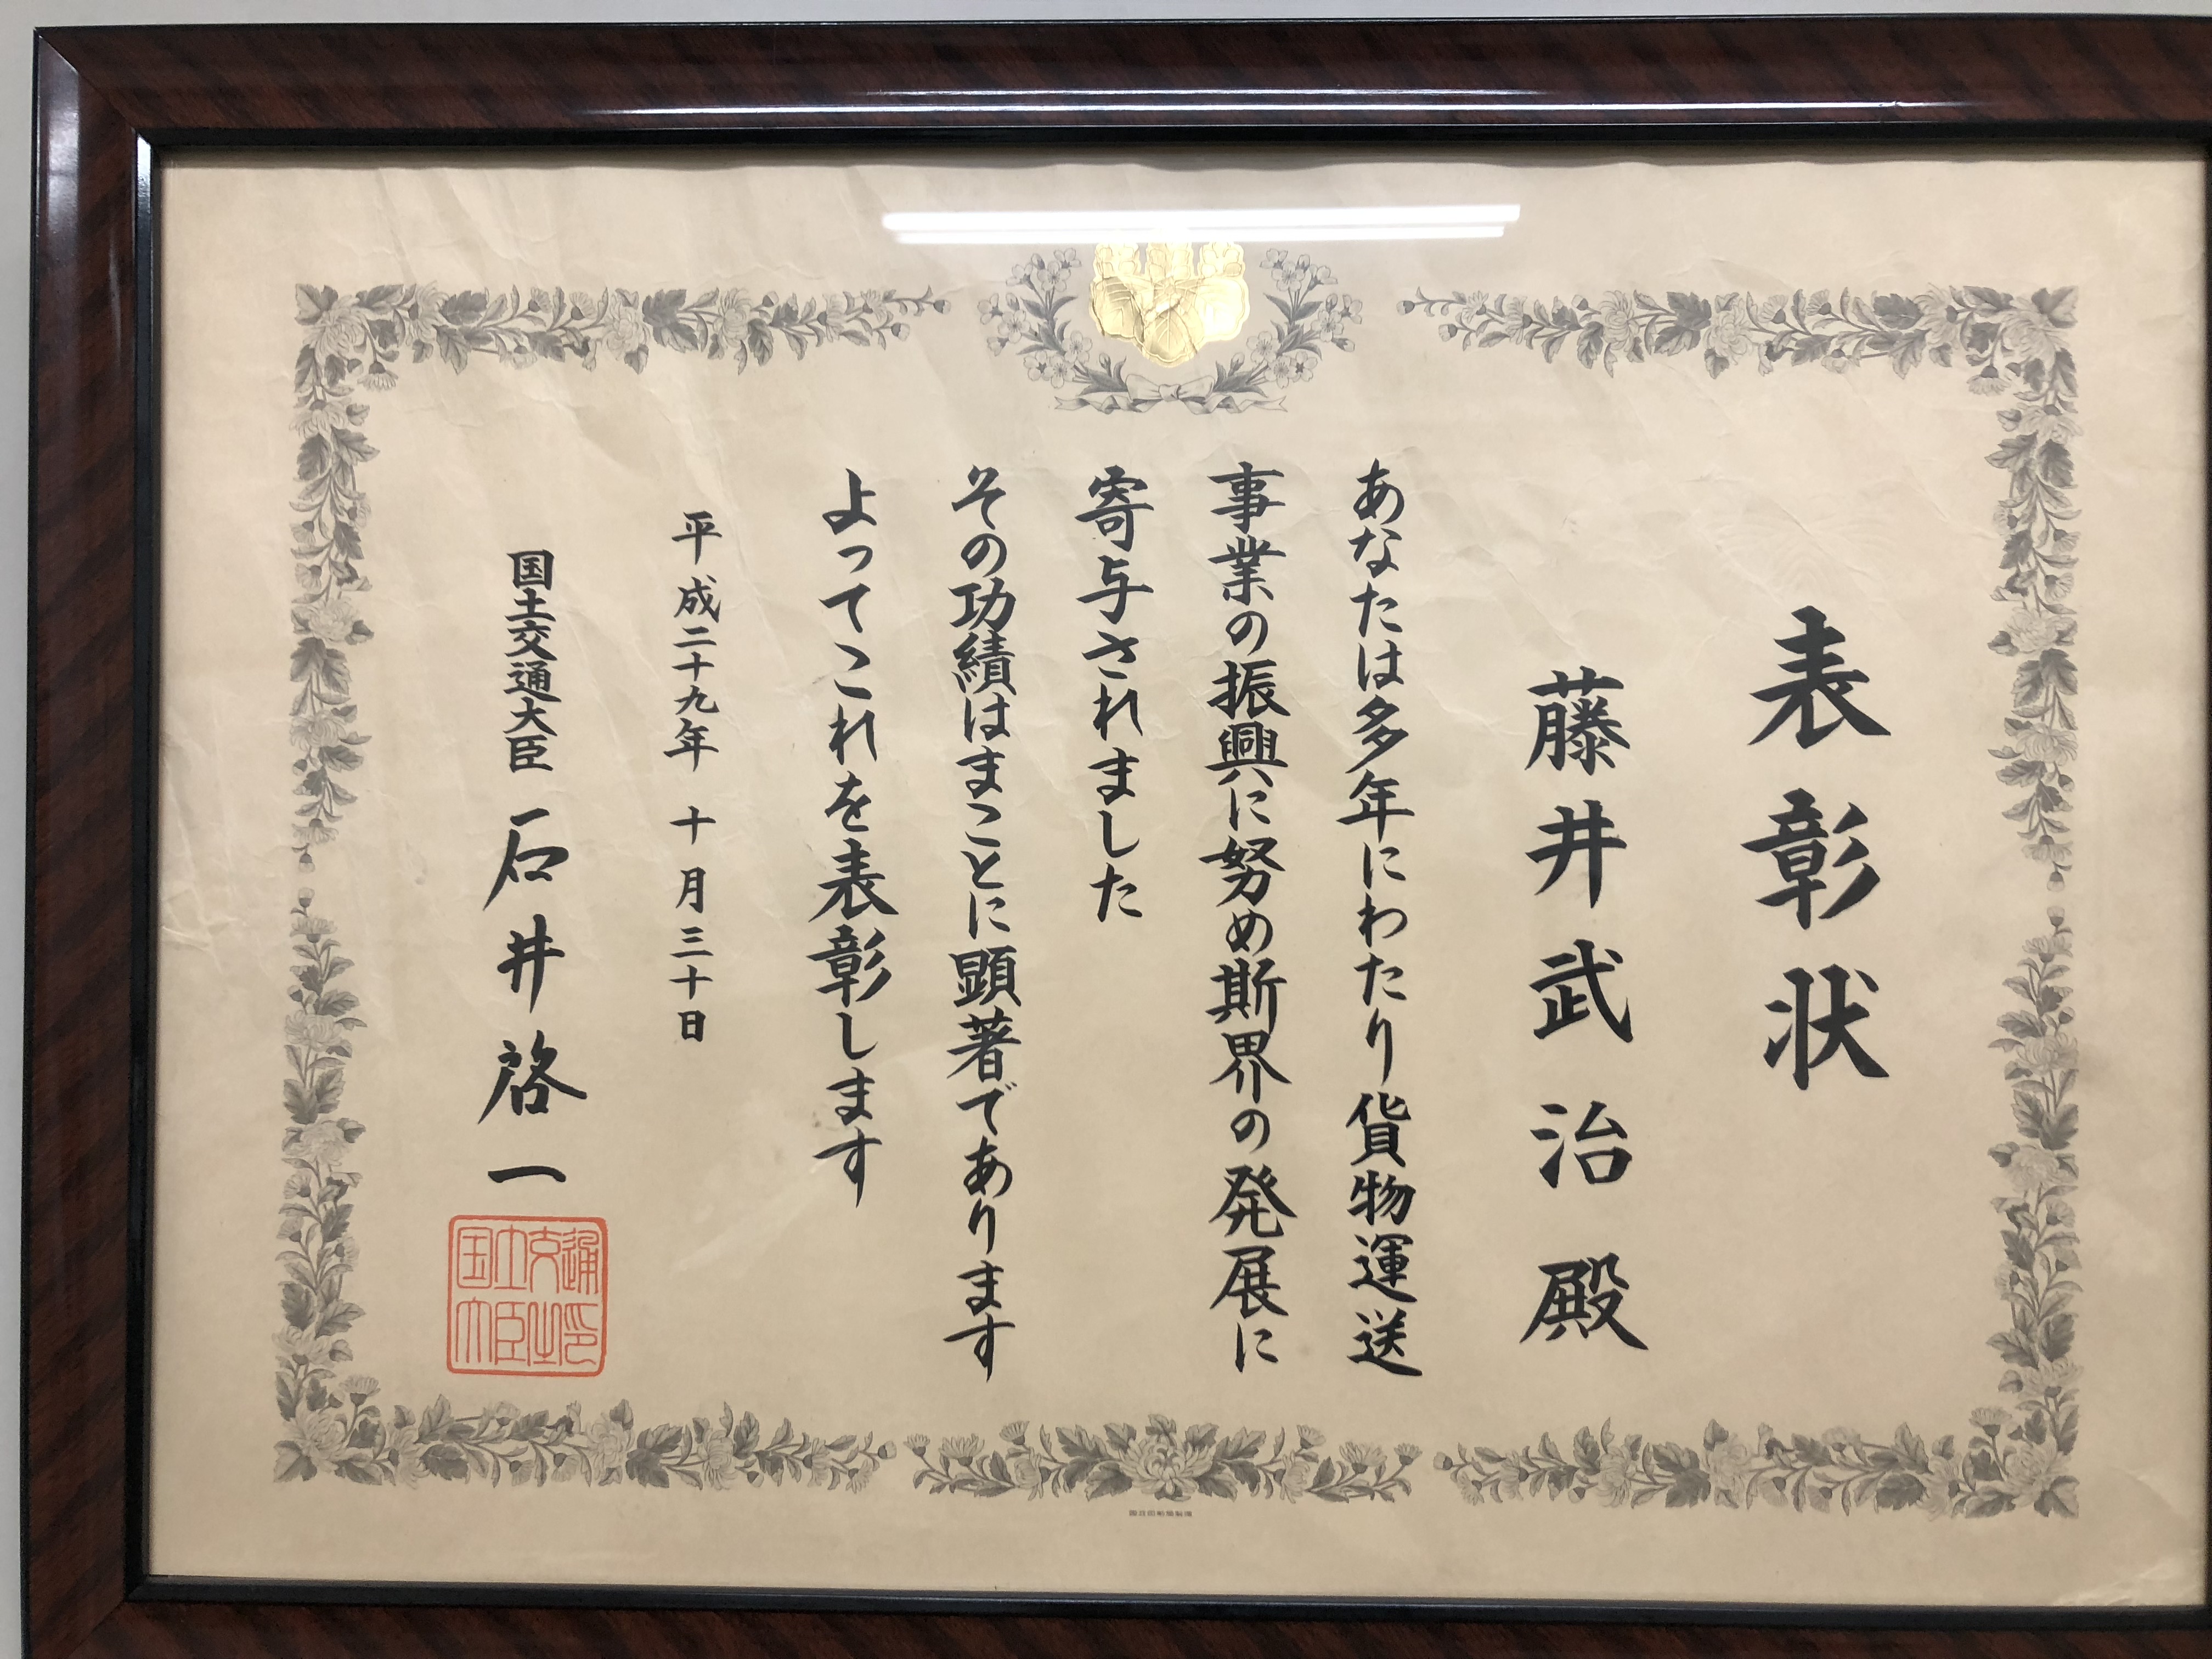 表彰状
藤井武治殿
あなたは多年にわたり貨物運送
事業の振興に努め斯界の発展に
寄与されました
その功績はまことに顕著であります
よってこれを表彰します
平成二十九年 十月三十日
国土交通大臣 石井啓一
国土交通大臣之印